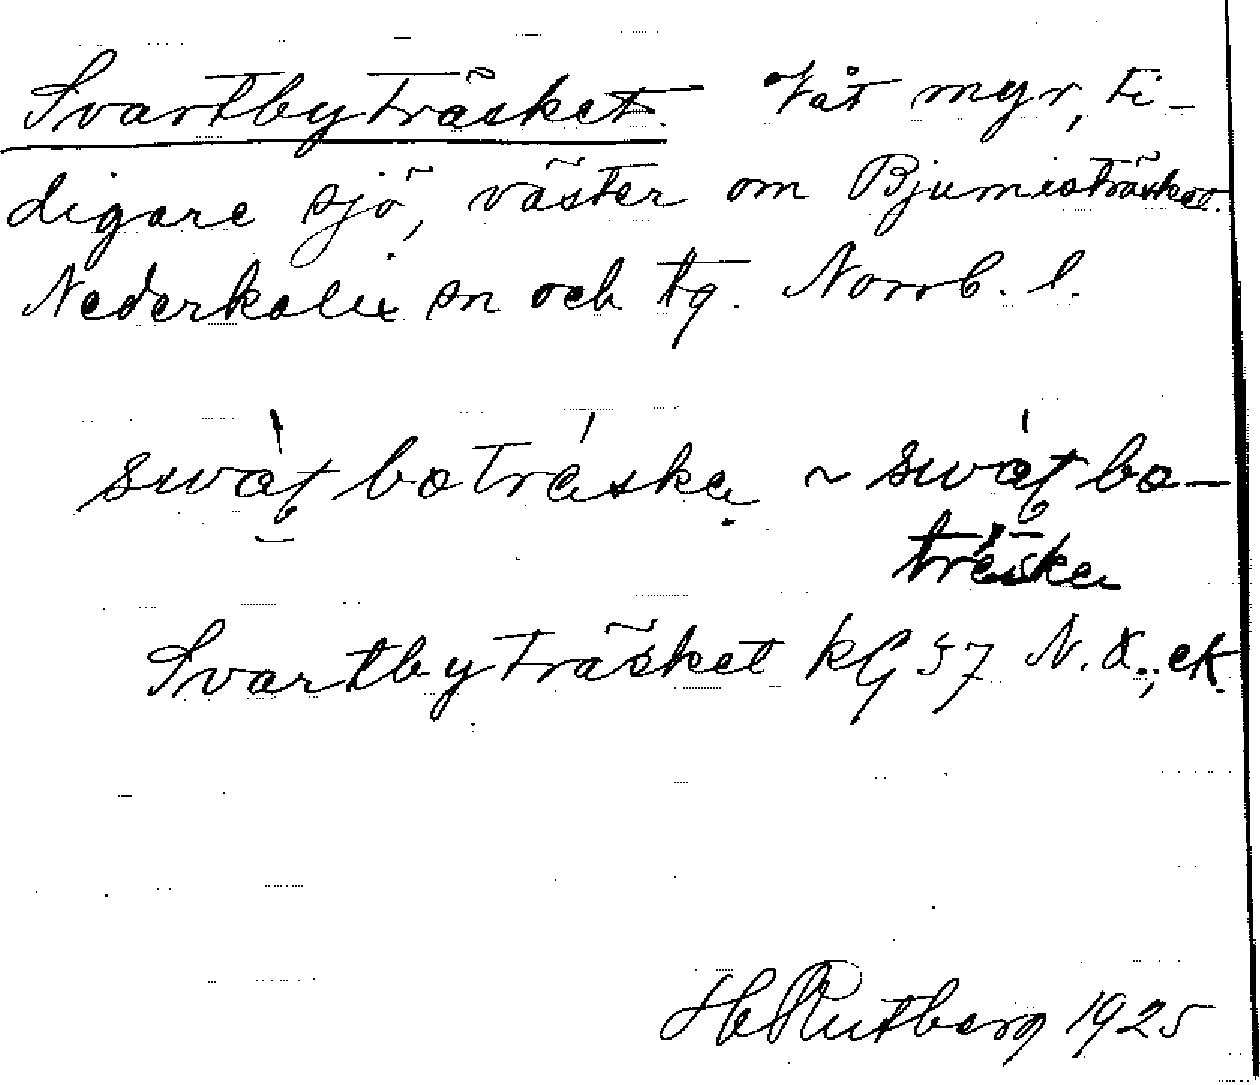 Svartbyträsket. Våt myr, ti-
digare sjö, väster om Bjumisträsket.
Nederkalix sn och tg. Norrb. l.
swat boträska ~ swat bo-
träska
Svartbyträsket kG 57 N.K., ek.
H Rutberg 1925